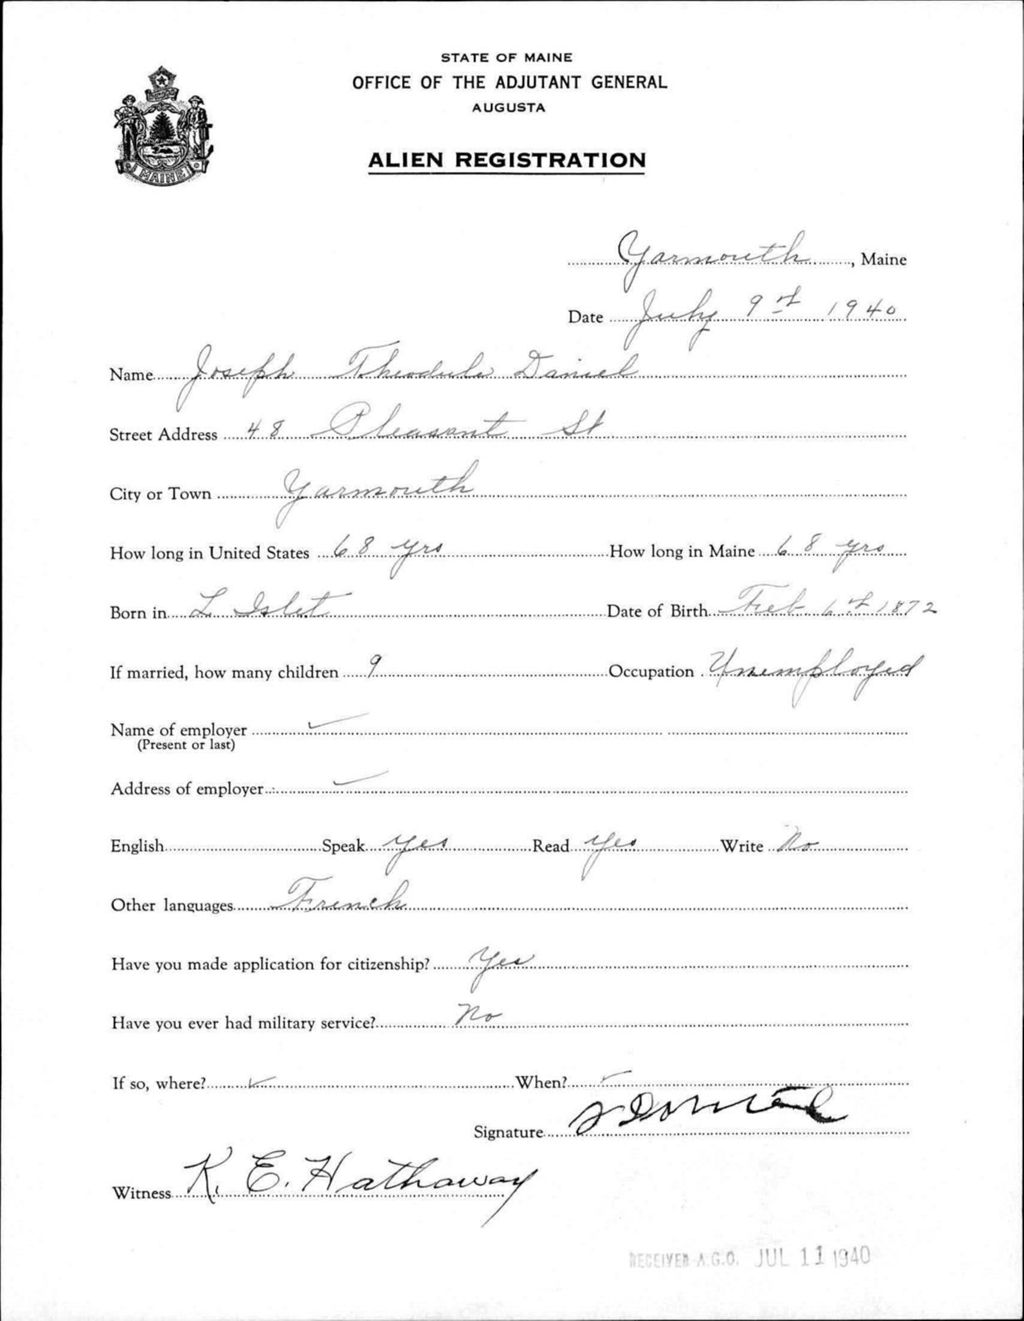 STATE OF MAINE
OFFICE OF THE ADJUTANT GENERAL
AUGUSTA
MAINE
ALIEN REGISTRATION
Yarmouth, Maine
Date July 9th 1940
Name Joseph Theodule Daniel
Street Address 48 Pleasant St
City or Town Yarmouth
How long in United States 68 yrs How long in Maine 68 yrs
Born in L Islet Date of Birth Feb 6th 1872
If married, how many children 9 Occupation Unemployed
Name of employer
(Present or last)
Address of employer
English Speak yes Read yes Write No
Other languages French
Have you made application for citizenship? Yes
Have you ever had military service? No
If so, where? When?
Signature
Witness K. E. Hathaway
RECEIVED A.G.O. JUL 11 1940